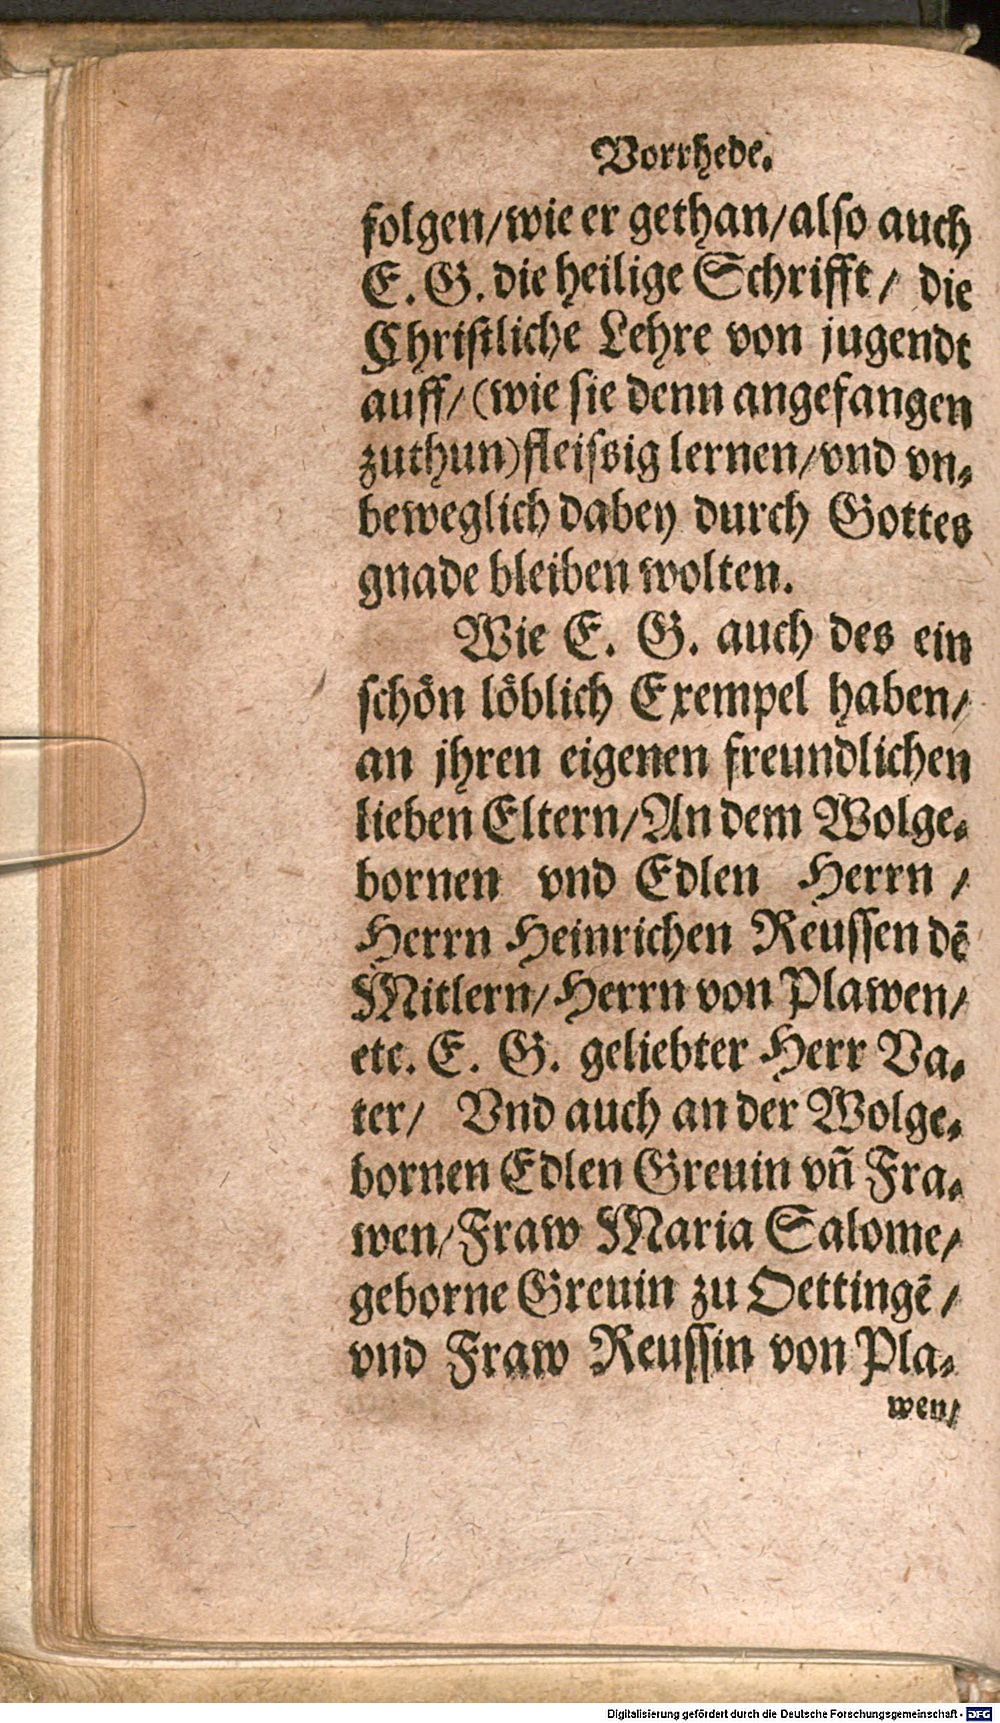 Vorrhede.
folgen/wie er gethan/also auch
E. G. die heilige Schrifft/ die
Christliche Lehre von jugendt
auff/(wie sie denn angefangen
zuthun)fleissig lernen/vnd vn-
beweglich dabey durch Gottes
gnade bleiben wolten.
Wie E. G. auch des ein
schön löblich Exempel haben/
an jhren eigenen freundlichen
lieben Eltern/An dem Wolge-
bornen vnd Edlen Herrn /
Herrn Heinrichen Reussen dē
Mitlern/Herrn von Plawen/
etc. E. G. geliebter Herr Va-
ter/ Vnd auch an der Wolge-
bornen Edlen Greuin vñ Fra-
wen/Fraw Maria Salome/
geborne Greuin zu Oettingē /
vnd Fraw Reussin von Pla-
wen/
Digitalisierung gefördert durch die Deutsche Forschungsgemeinschaft - DFG